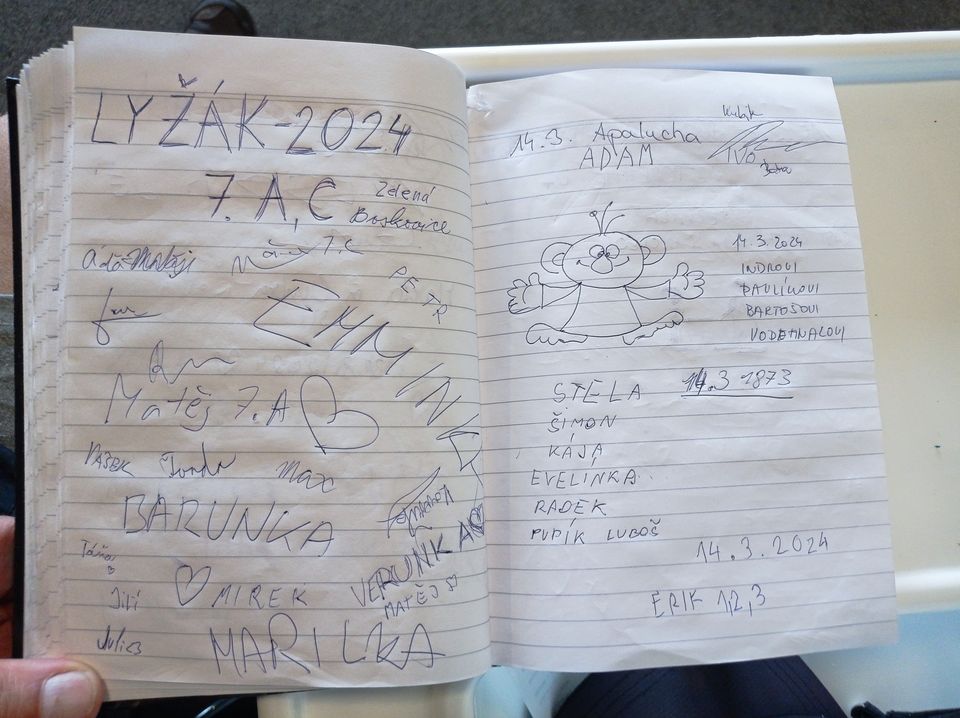 LYŽÁK-2024
7. A, C Zelená
Boskovice
7.C
PETR
EMMINKA
Matěj 7.A
VAŠEK Jonda Max
BARUNKA
VERUNKA
Táňa
MIREK
MATĚJ S
Jiří
Julies
MARILKA
14.3. Apalucha
ADAM
Kubík
IVO
Bára
14.3.2024
INDROVI
PAVLÍKOVI
BARTOŠOVI
VODEHNALOVI
STELA 14.3 1873
ŠIMON
KÁJA
EVELINKA
RADEK
PUPÍK LUBOŠ
14.3.2024
ERIK 1,2,3